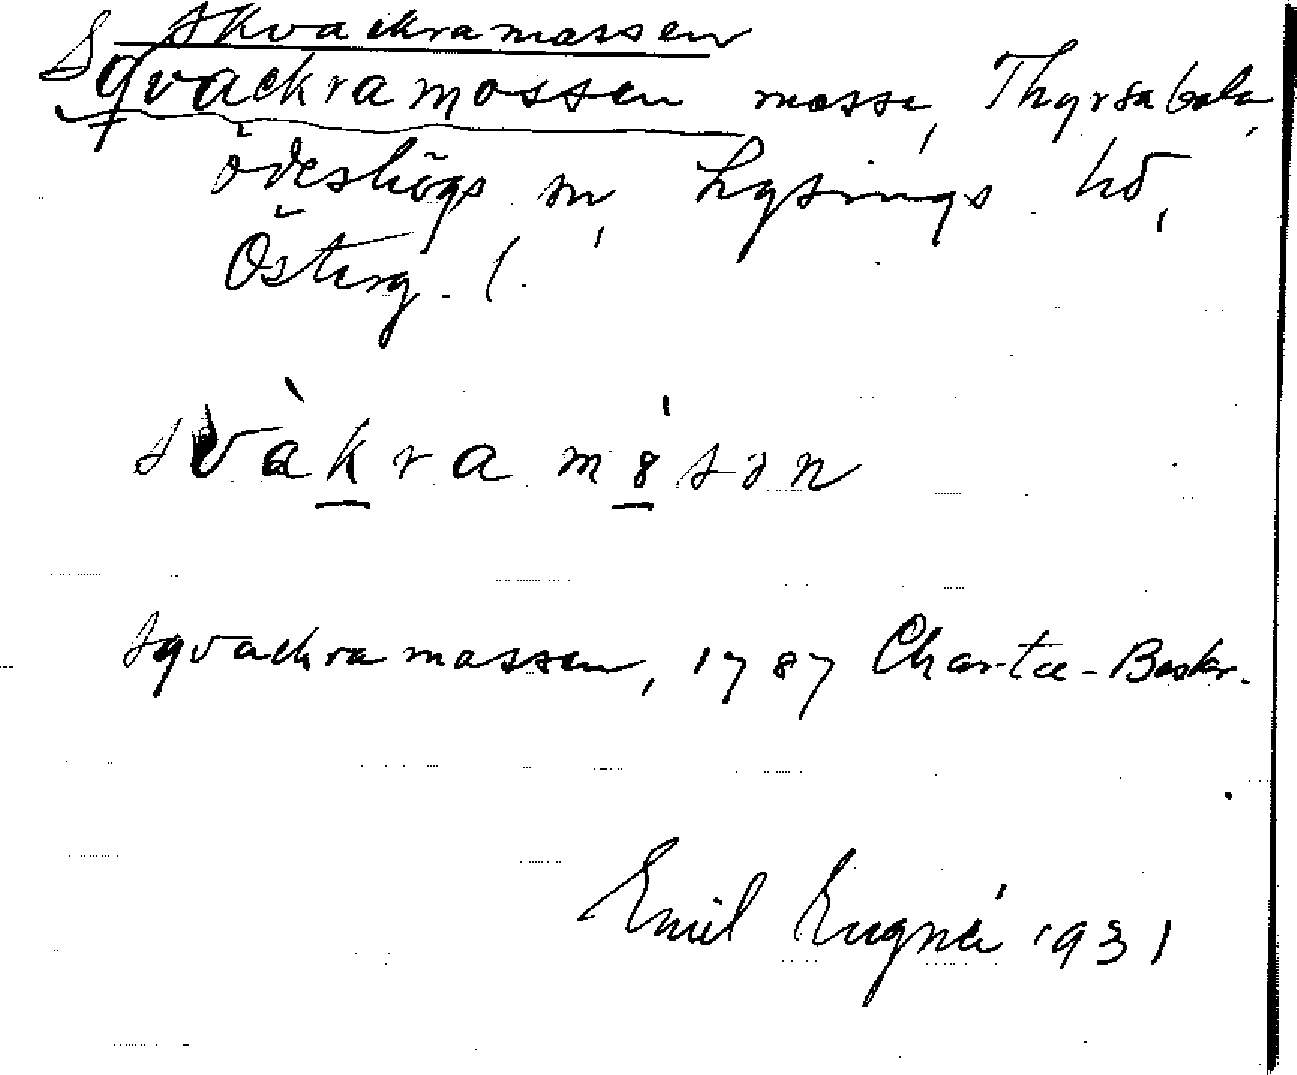 Skvackramossen
Sqvackramossen mosse, Thyrsabola,
Ödeshögs sn, Lysings hd,
Österg. l.
svàkramȯsən
Sqvackramossen, 1787 Chartæ-Beskr.
Emil Lugné 1931